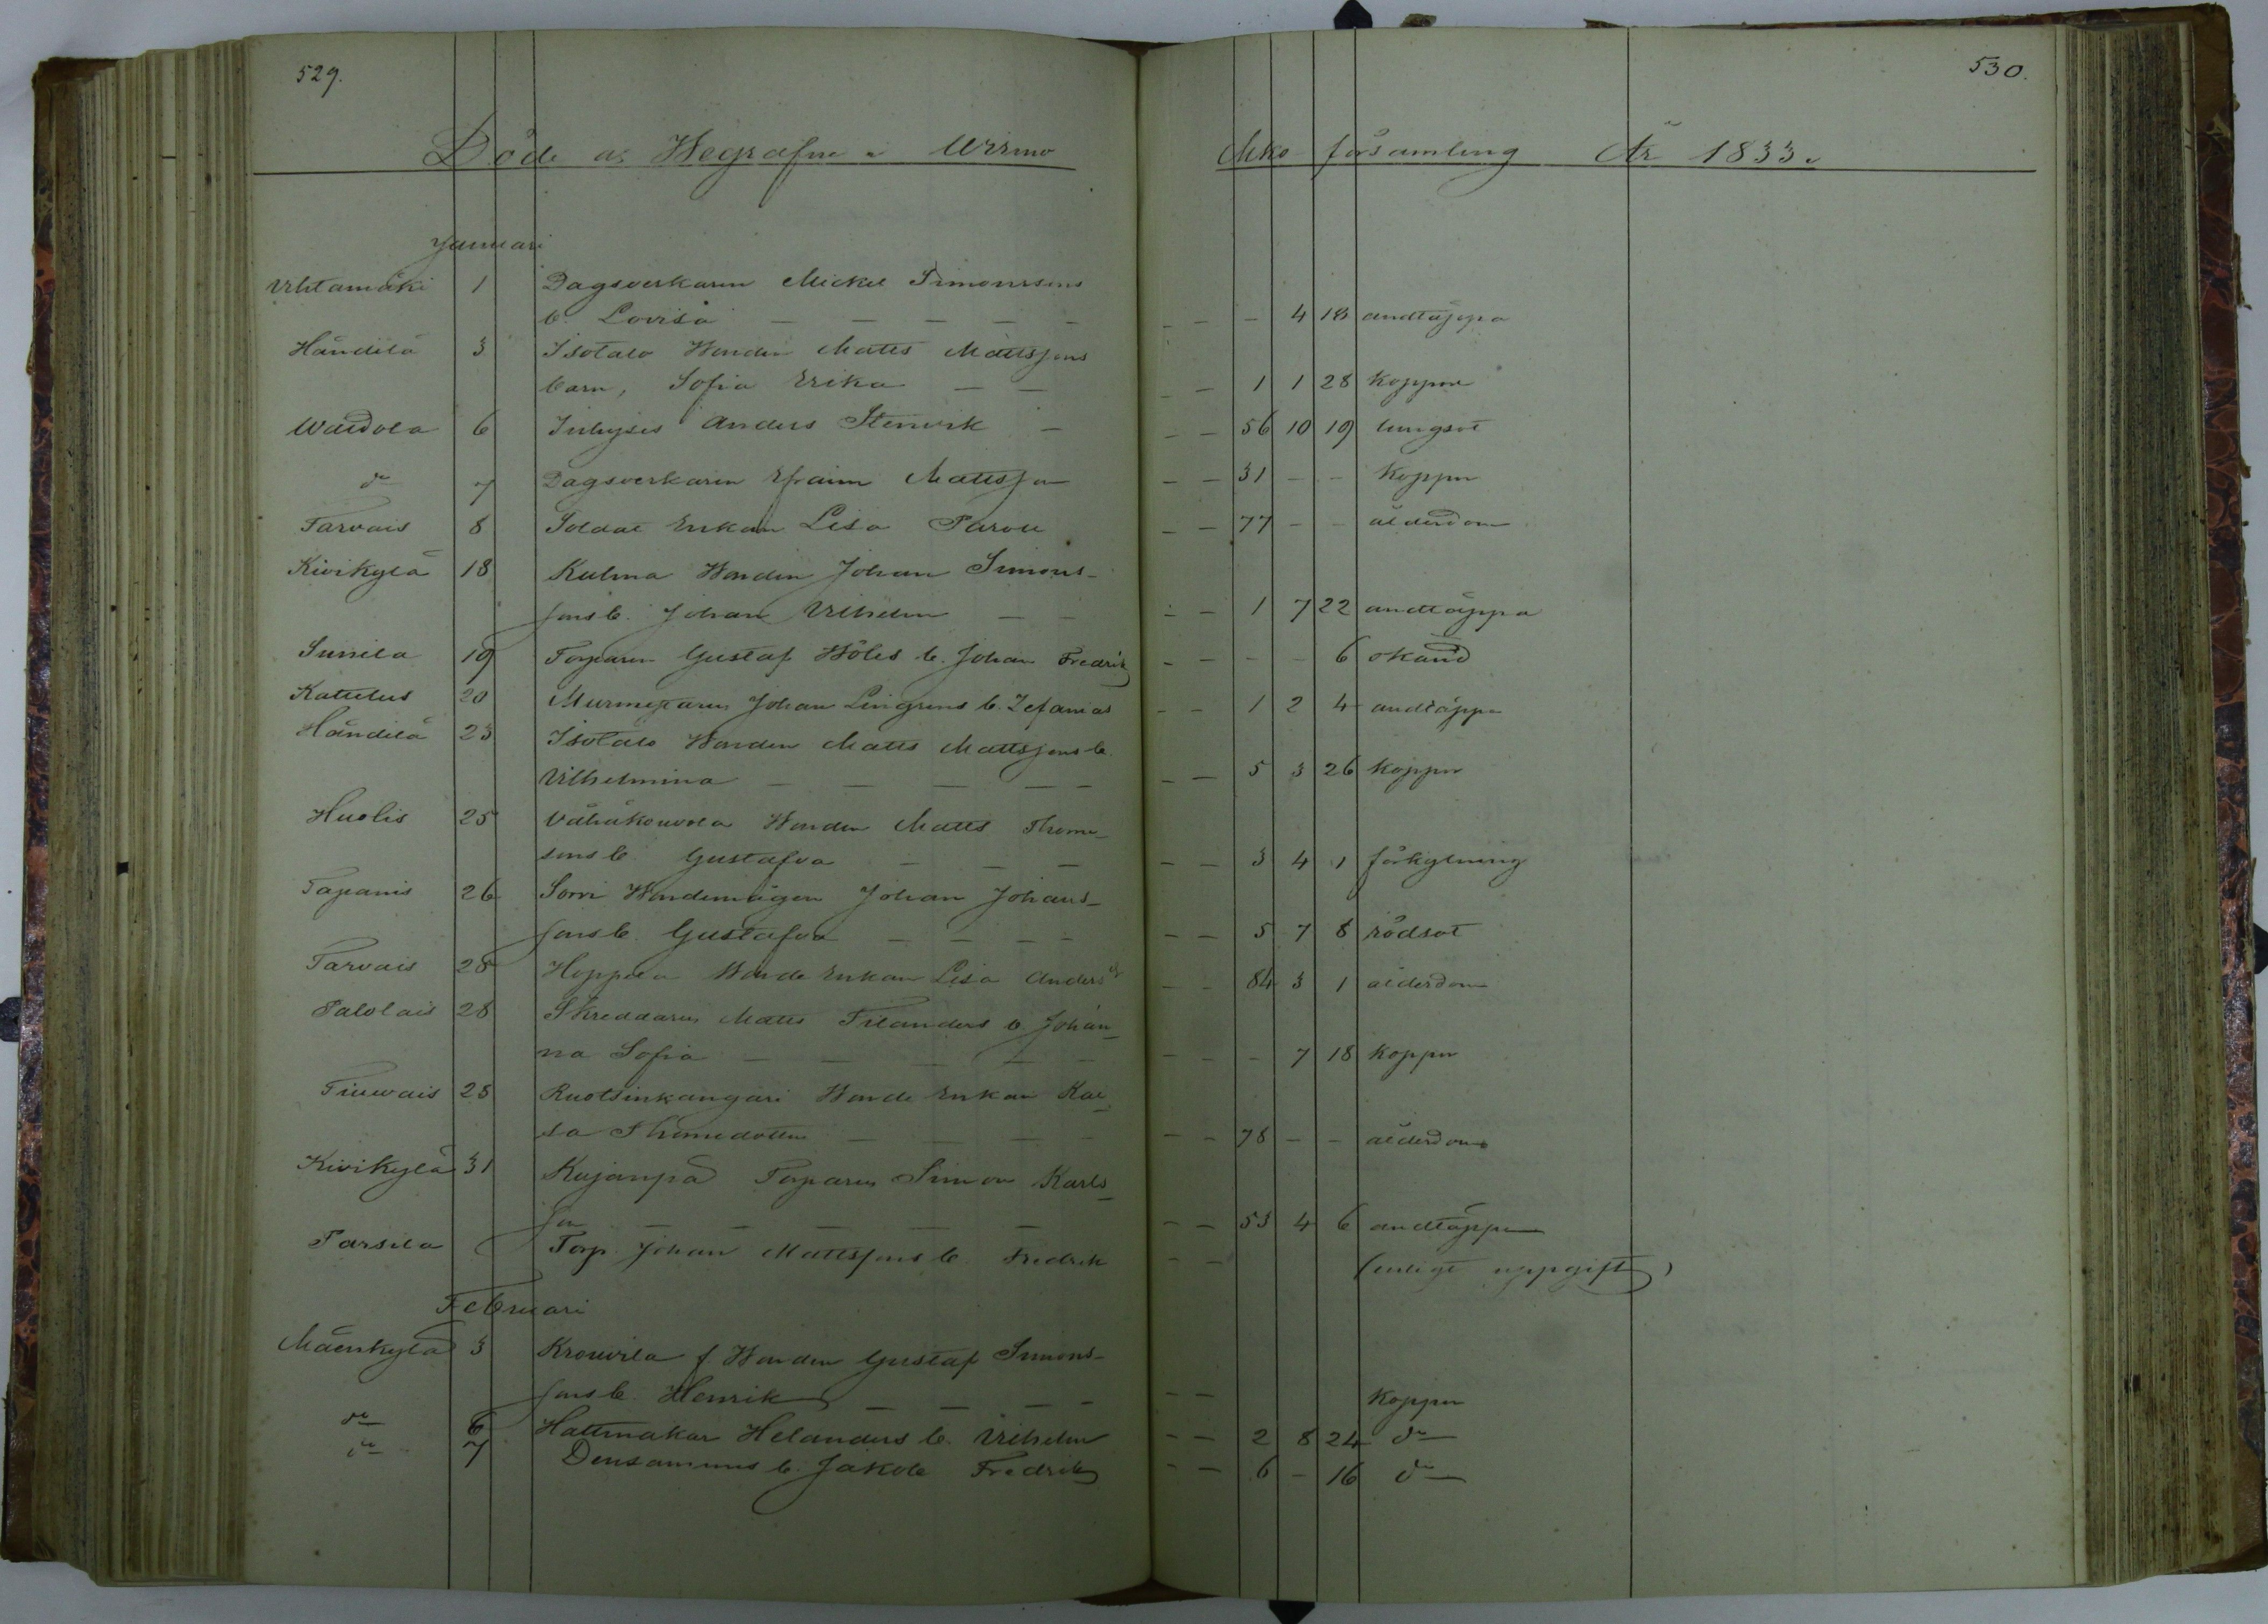 529.
530.
Döde o: Begrafne i Virmo
Mko församling År 1833.
Januari
Uhtamäki 1 Dagsverkaren Mickel Simonssons
b. Lovisa — — — — — — — — 4 18 andtäppa
Händilä 3 Isotalo Bonden Matts Mattssons
barn, Sofia Erika — — — 1 1 28 Koppor
Waidola 6 Inhyses Anders Stenvik — — — 56 10 19 lungsot
do 7 Dagsverkaren Efraim Mattsson — — 31 — — Koppor
Tarvais 8 Soldat Enkan Lisa Parou — — 77 — — ålderdom
Kivikylä 18 Kulma Bonden Johan Simons-
sons b. Johan Vilhelm — — — — 1 7 22 andtäppa
Sunila 19 Torparen Gustaf Böles b. Johan Fredrik — — — — 6 okänd
Kattelus 20 Murmästaren Johan Lingrens b. Zefanias — — 1 2 4 andtäppa
Händilä 23 Isotalo Bonden Matts Mattssons b.
Vilhelmina — — — — — — — 5 3 26 Koppor
Huolis 25 Vähäkouvola Bonden Matts Thome-
sons b. Gustafva — — — — — 3 4 1 förkylning
Tapanis 26 Sorri Bondemågen Johan Johans-
sons b. Gustafva — — — — — — 5 7 8 rödsot
Tarvais 28 Hyppilä Bonde Enkan Lisa Andersdr — — 84 3 1 ålderdom
Palolais 28 Skreddaren Matts Filanders b. Johan-
na Sofia — — — — — — — — 7 18 Koppor
Tiuvais 28 Ruotsinkangari Bonde Enkan Kai-
sa Thomedotter — — — — — — 78 — — ålderdom
Kivikylä 31 Kujanpä Torparen Simon Karls-
son — — — — — — — 53 4 6 andtäppa
Parsila Torp. Johan Mattssons b. Fredrik — — (enligt uppgift)
Februari
Mäenkylä 3 Krouvila f. Bonden Gustaf Simons-
sons b. Henrik — — — — — — Koppor
do 6 Hattmakar Helanders b. Vilhelm — — 2 8 24 do
do 7 Densammes b. Jakob Fredrik — — 6 — 16 do